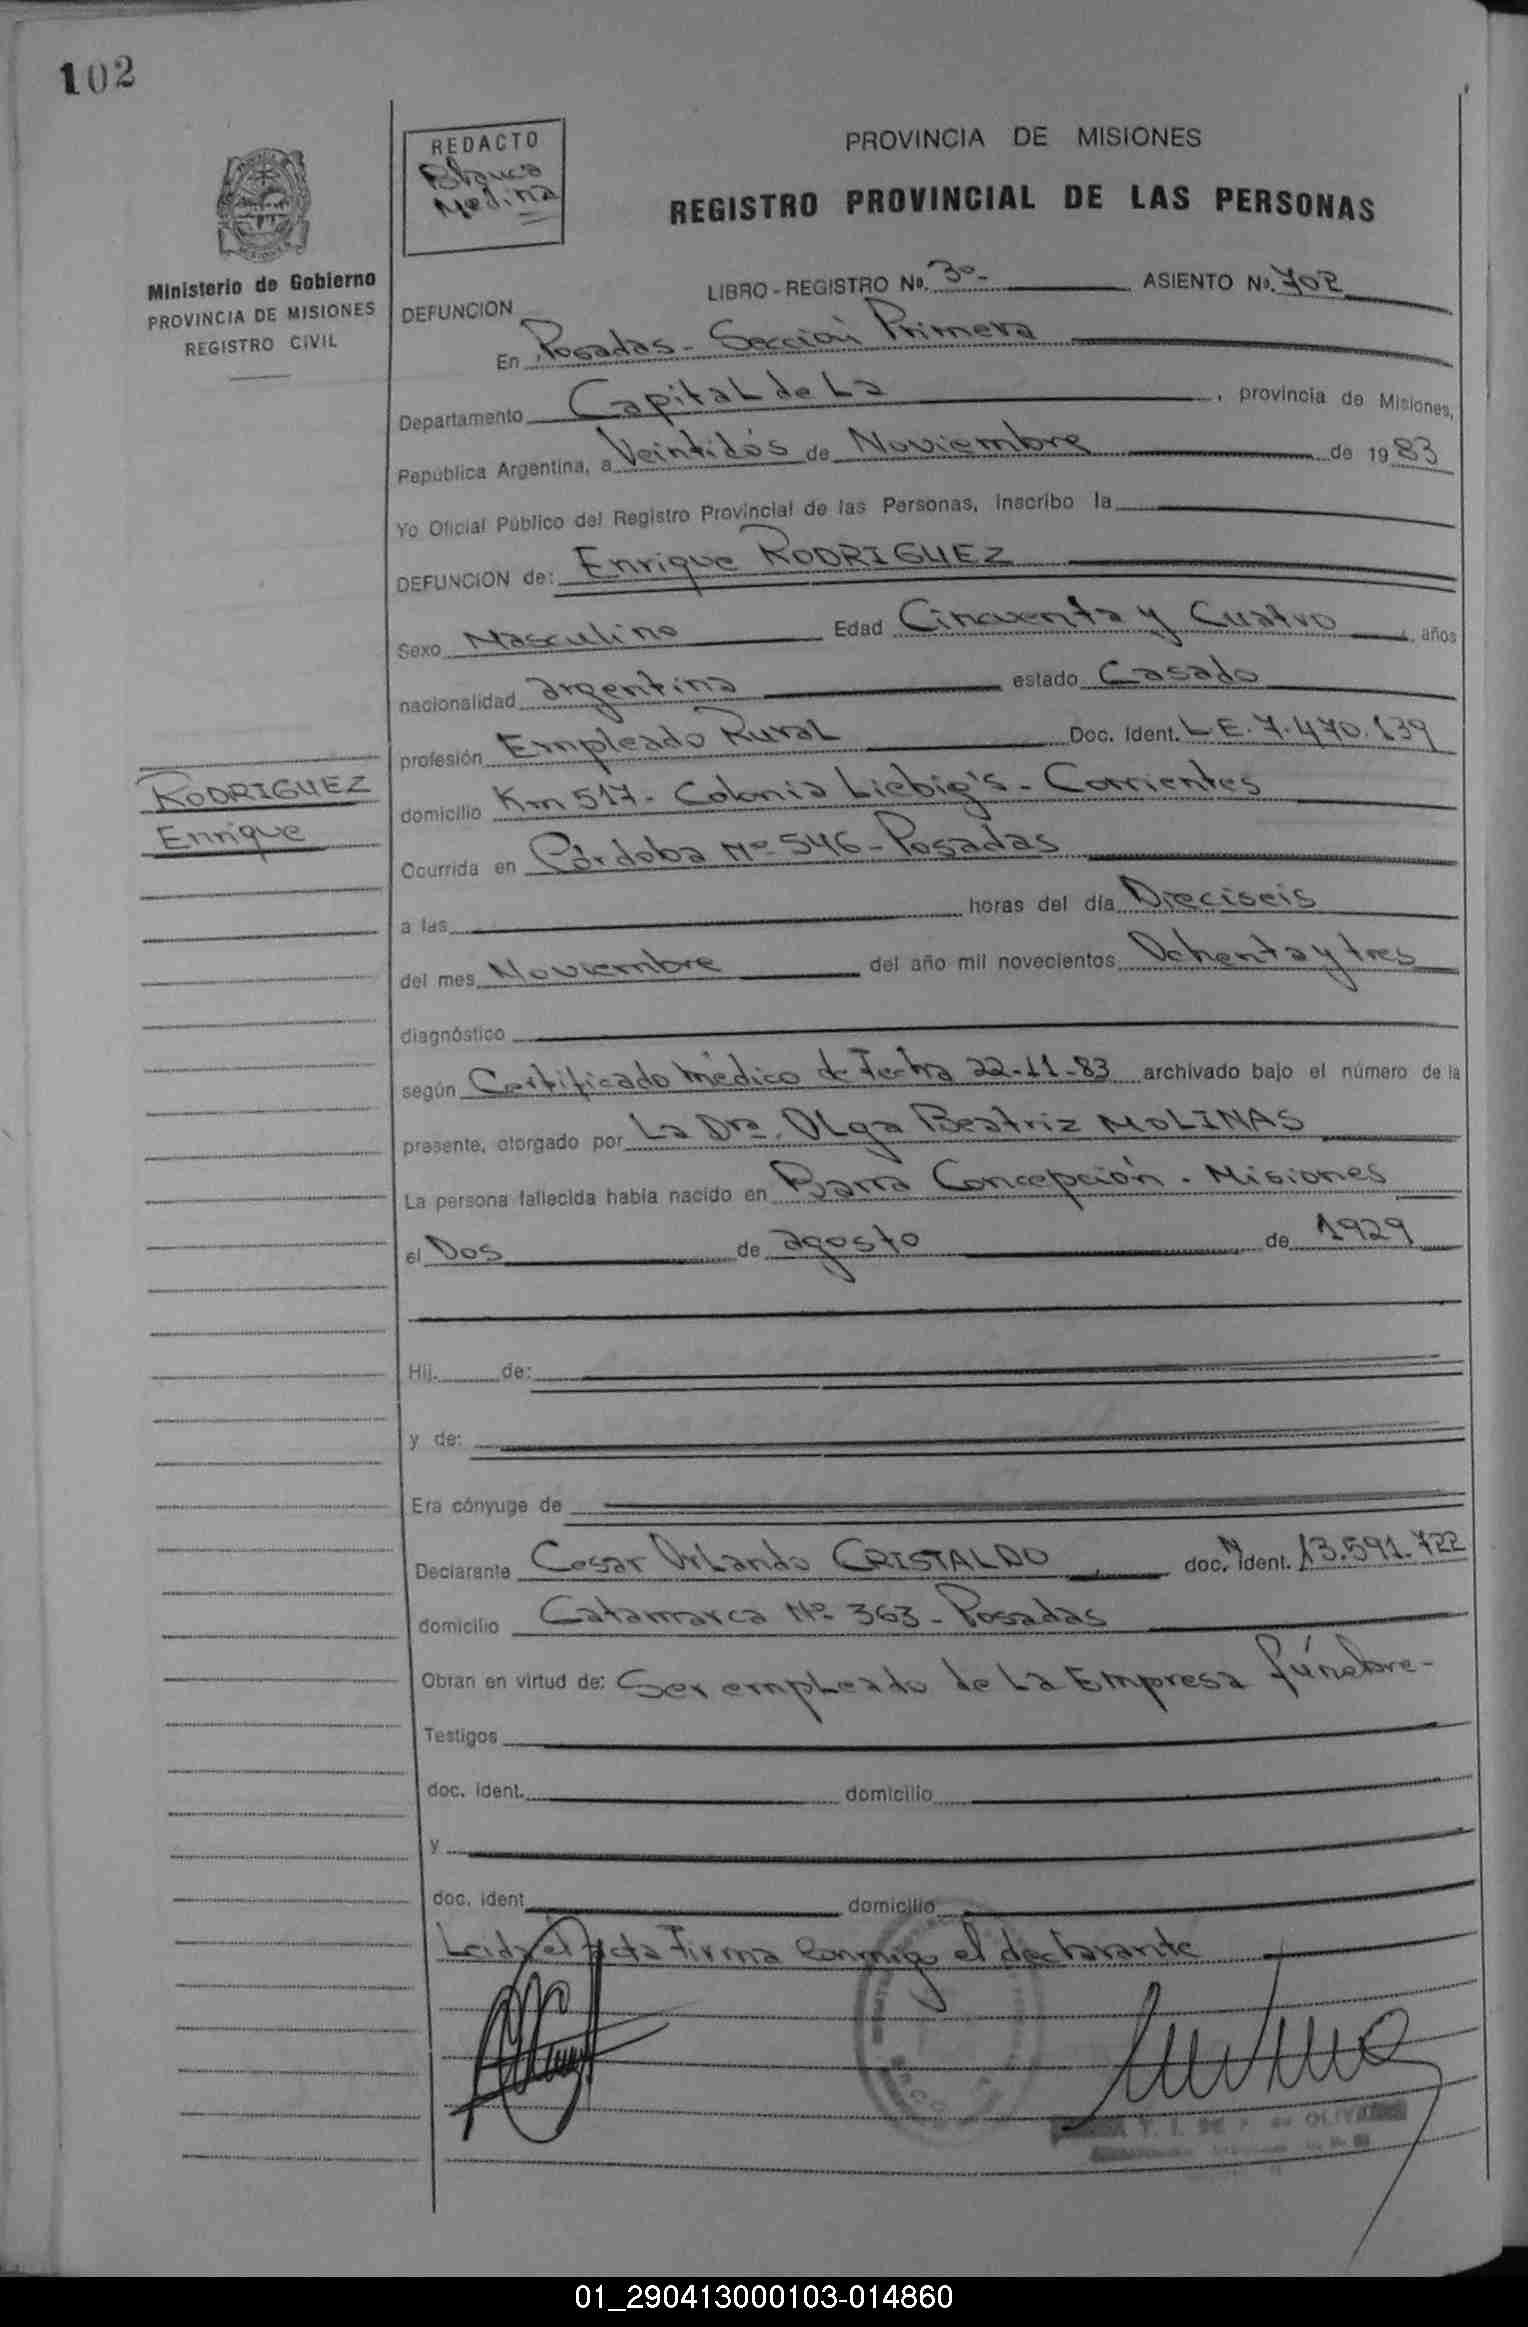 102
REDACTO
Blanca
Medina
PROVINCIA DE MISIONES
REGISTRO PROVINCIAL DE LAS PERSONAS
Ministerio de Gobierno
PROVINCIA DE MISIONES
REGISTRO CIVIL
LIBRO - REGISTRO No. 3º- ASIENTO No. 702
DEFUNCION
En Posadas - Sección Primera
Departamento Capital de La , provincia de Misiones,
República Argentina, a Veintidós de Noviembre de 1983
Yo Oficial Público del Registro Provincial de las Personas, inscribo la
DEFUNCION de: Enrique RODRIGUEZ
Sexo Masculino Edad Cincuenta y Cuatro años
nacionalidad argentina estado Casado
profesión Empleado Rural Doc. Ident. L.E. 7.470.139
RODRIGUEZ
Enrique
domicilio Km 517 - Colonia Liebig's - Corrientes
Ocurrida en Córdoba Nº 546 - Posadas
a las horas del día Dieciseis
del mes Noviembre del año mil novecientos Ochenta y tres
diagnóstico
según Certificado médico de Fecha 22-11-83 archivado bajo el número de la
presente, otorgado por La Dra. Olga Beatriz MOLINAS
La persona fallecida había nacido en Barra Concepción - Misiones
el Dos de agosto de 1929
Hij. de:
y de:
Era cónyuge de
Declarante Cesar Orlando CRISTALDO doc. N ident. 13.591.722
domicilio Catamarca Nº 363 - Posadas
Obran en virtud de: Ser empleado de La Empresa fúnebre -
Testigos
doc. ident. domicilio
y
doc. ident domicilio
Leida el acta Firma Conmigo el declarante
DE OLIVA
01_290413000103-014860